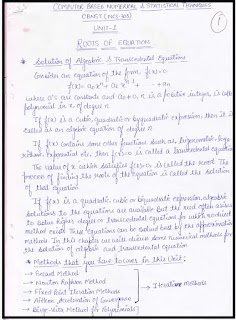 COMPUTER BASED NUMERICAL & STATISTICAL TECHNIQUES
CBNST (NCS-303)
UNIT-1
①
ROOTS OF EQUATION
* Solution of Algebraic & Transcendental Equations
Consider an equation of the form f(x)=0
where a's are constants and a0≠0, n is a positive integer, is called
polynomial in x of degree n
If f(x) is a cubic, quadratic or biquadratic expression, then it is
called as an algebraic equation of degree n
If f(x) contains some other functions such as, trigonometric, loga-
rithmic exponential etc, then f(x)=0 is called a Transcendental equation
The value of x which satisfies f(x)=0 is called the root. The
process of finding the roots of the equation is called the solution of
that equation
If f(x) is a quadratic, cubic or biquadratic expression, algebraic
solutions to the equations are available. But the need often arises
to solve higher degree or transcendental equations for which no direct
method exist. These equations can be solved best by the approximation
methods. In this chapter we will discuss some numerical methods for
the solution of algebraic and transcendental equation
* Methods that you have to cover in this Unit:
→ Secant Method
→ Newton Raphson Method
→ Fixed Point Iteration Methods
→ Iterative methods
→ Aitken Acceleration of Convergence
→ Birge-Vieta Method for Polynomials